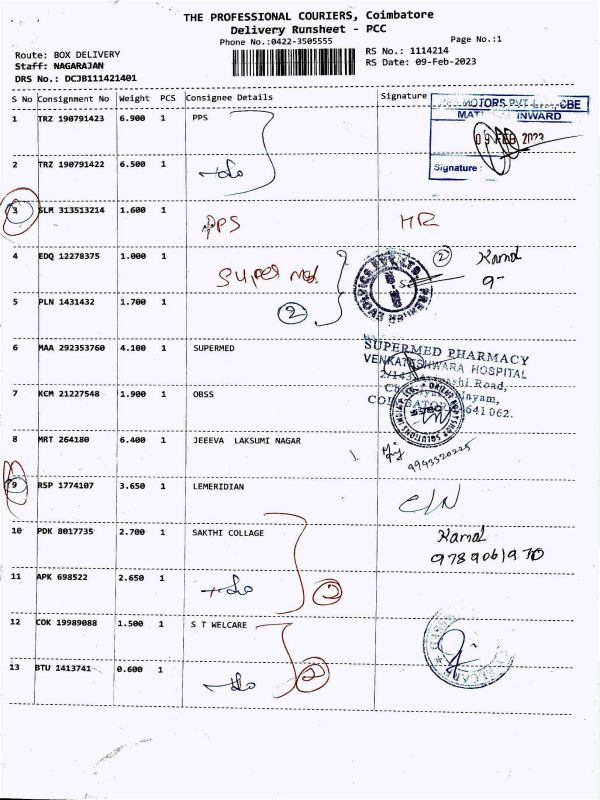 THE PROFESSIONAL COURIERS, Coimbatore
Delivery Runsheet - PCC
Phone No.:0422-3505555
Page No.:1
Route: BOX DELIVERY
RS No.: 1114214
Staff: NAGARAJAN
RS Date: 09-Feb-2023
DRS No.: DCJB111421401
S No Consignment No Weight PCS Consignee Details Signature
MOTORS PVT CBE
INWARD
09 FEB 2023
Signature :
1 TRZ 190791423 6.900 1 PPS
2 TRZ 190791422 6.500 1
3 SLM 313513214 1.600 1 PPS HR
4 EDQ 12278375 1.000 1 Super med 2 Kamal
9-
5 PLN 1431432 1.700 1 2
6 MAA 292353760 4.100 1 SUPERMED
SUPERMED PHARMACY
VENKATESHWARA HOSPITAL
Road,
641 062.
7 KCM 21227548 1.900 1 OBSS
8 MRT 264180 6.400 1 JEEEVA LAKSUMI NAGAR
9943320225
9 RSP 1774107 3.650 1 LEMERIDIAN
10 PDK 8017735 2.700 1 SAKTHI COLLAGE Kamal
9789061970
11 APK 698522 2.650 1
12 COK 19989088 1.500 1 S T WELCARE
13 BTU 1413741 0.600 1 2